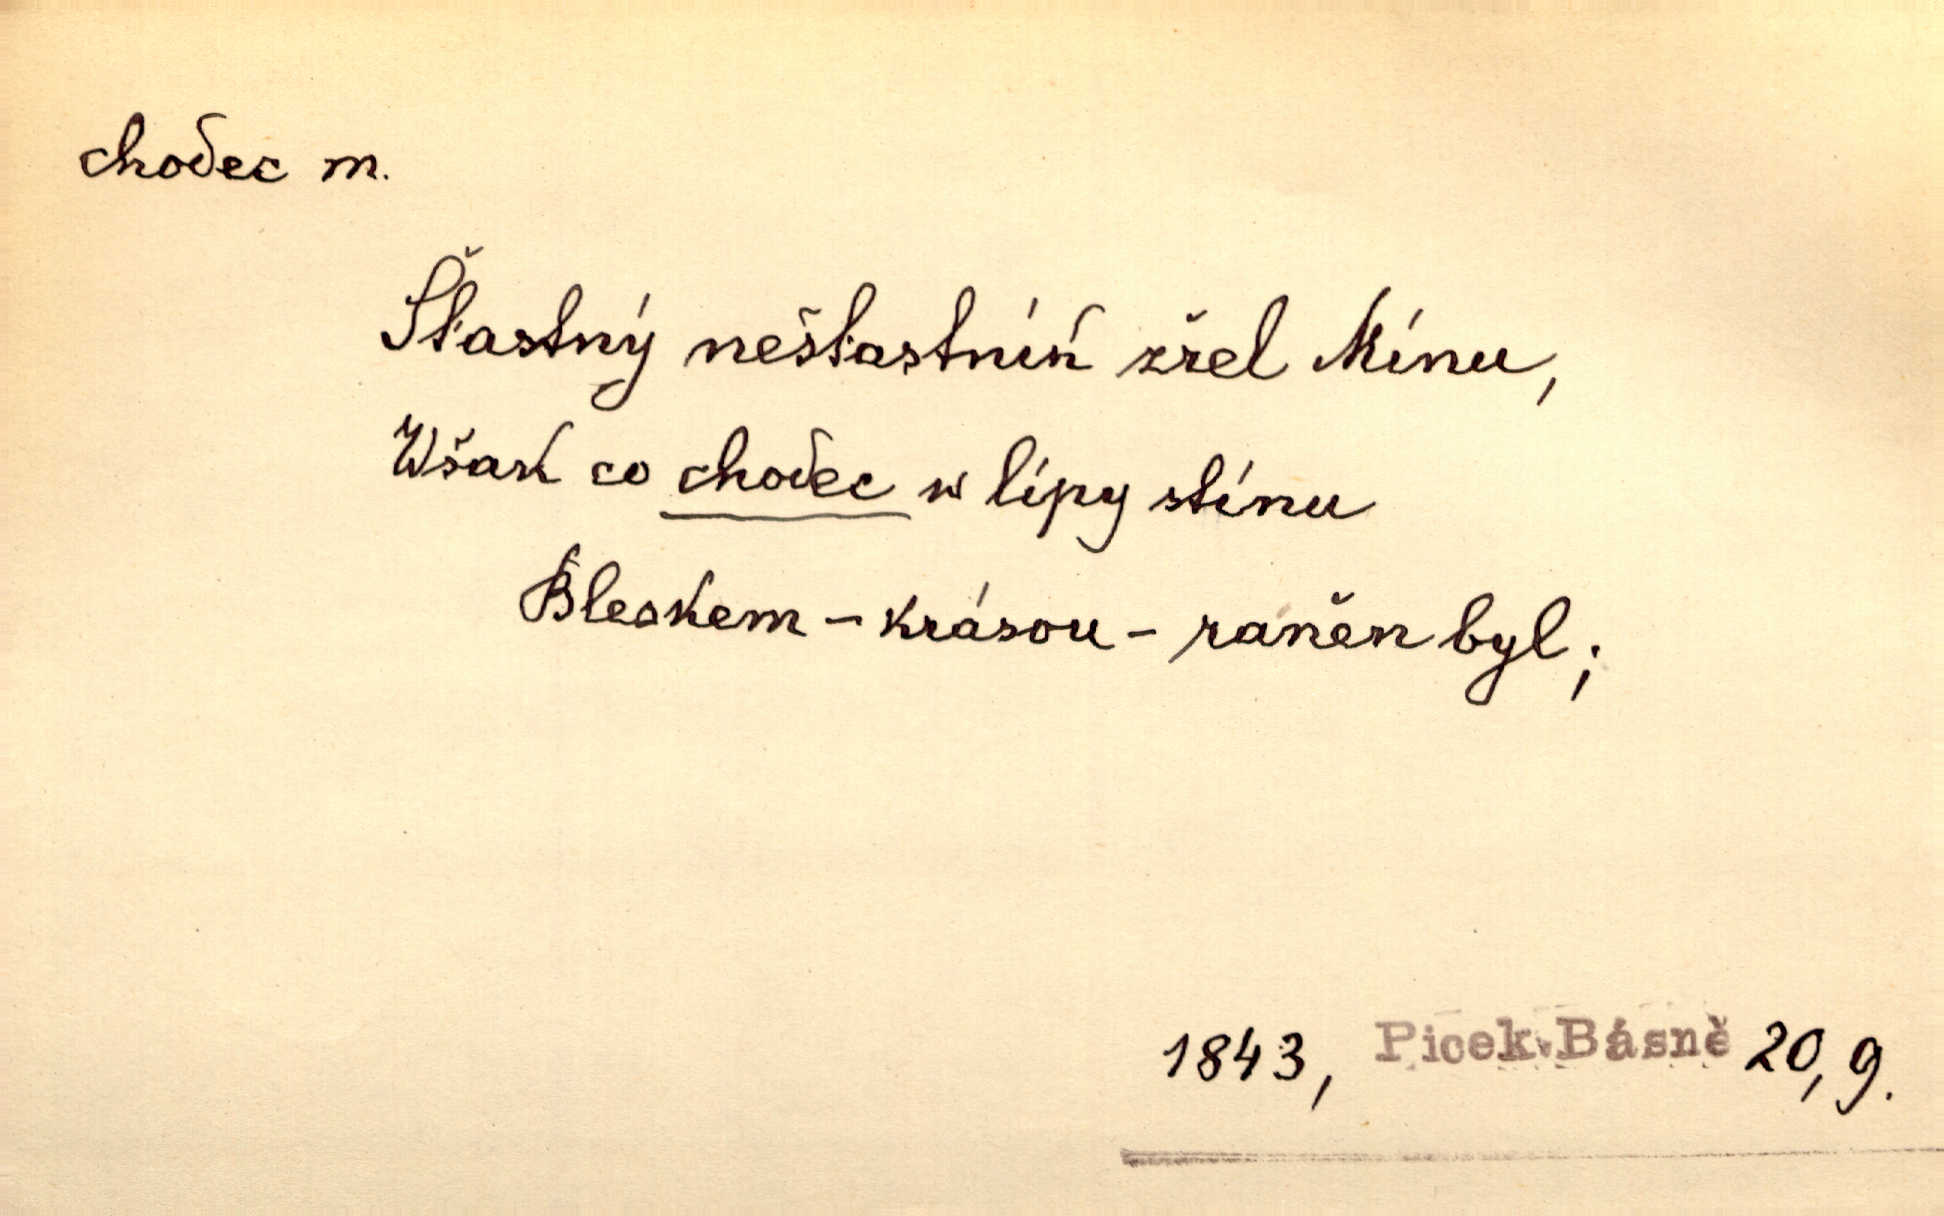 chodec m.
Šťastný nešťastník zřel Mínu,
Wšak co chodec w lípy stínu
Bleskem – krásou – raněn byl;
1843, Picek, Básně 20, 9.